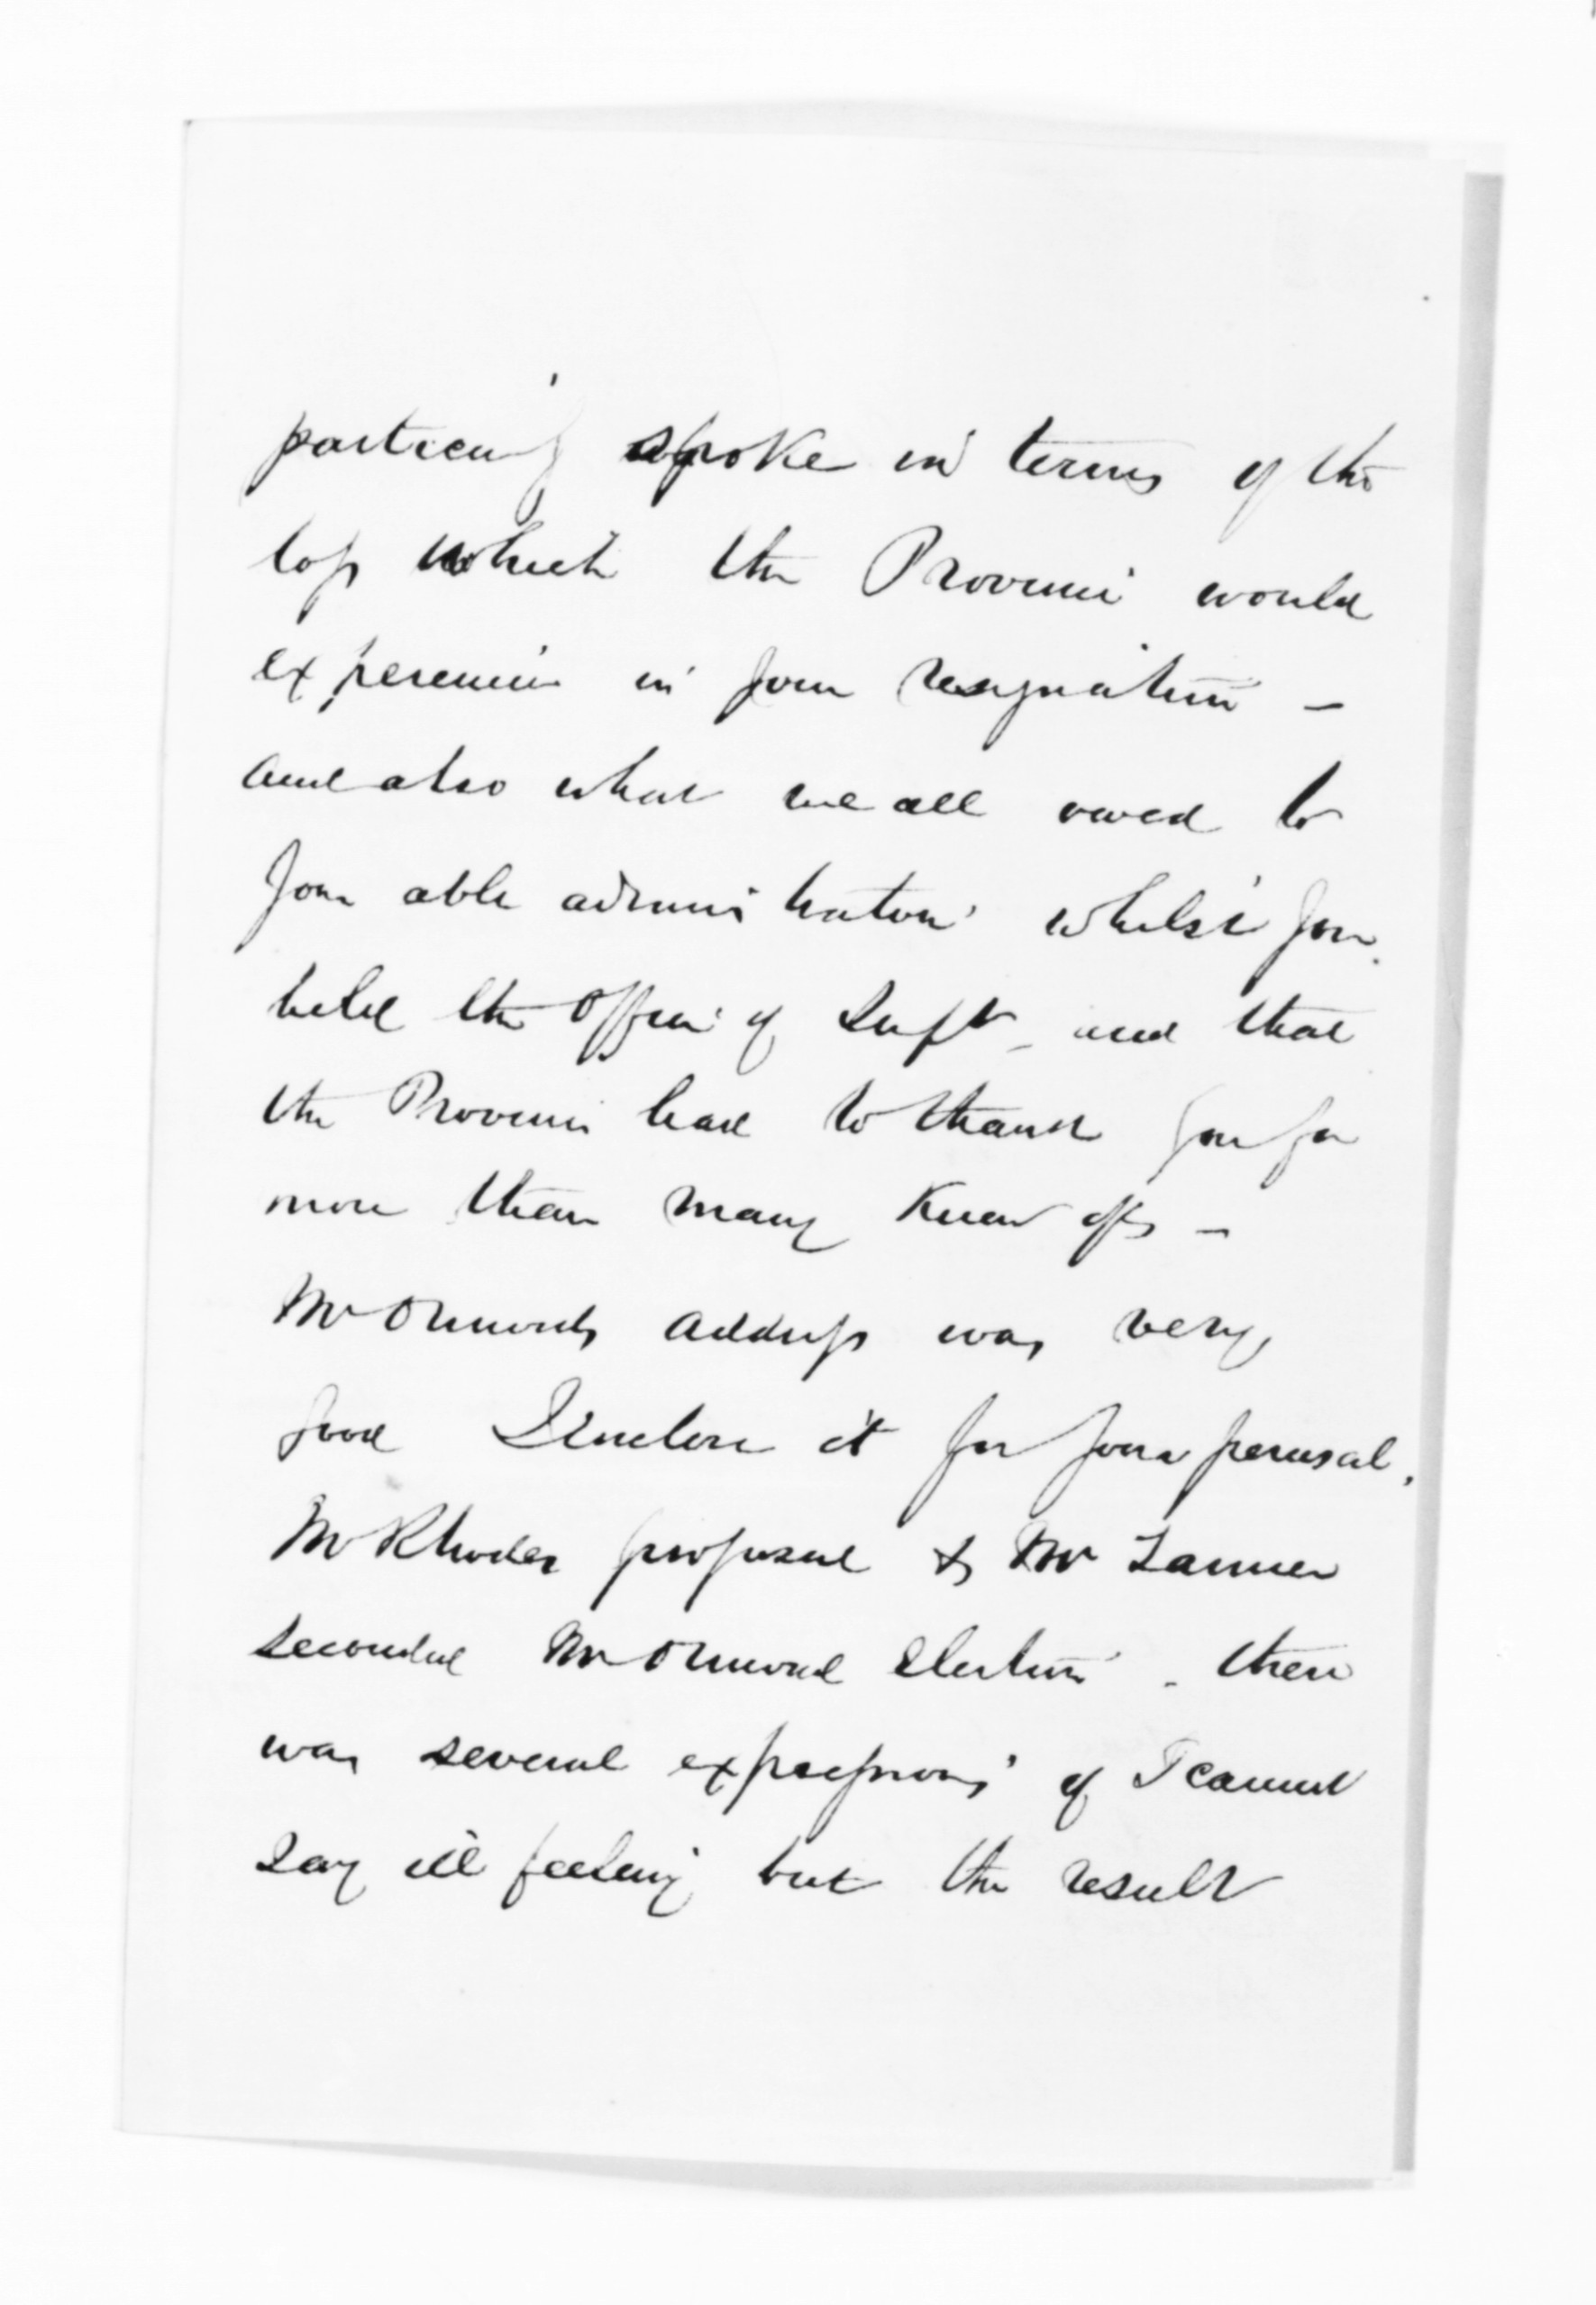 particularly spoke in terms of the
loss which the Province would
experience in your resignation -
and also what we all owed to
your able administration whilst you
held the Office of Supt - and that
the Province had to thank you for
more than many knew of -
Mr Ormonds address was very
good I enclose it for your perusal.
Mr Rhodes proposed & Mr Tanner
seconded Mr Ormond Election - there
was several expressions of I cannot
say ill feeling but the result